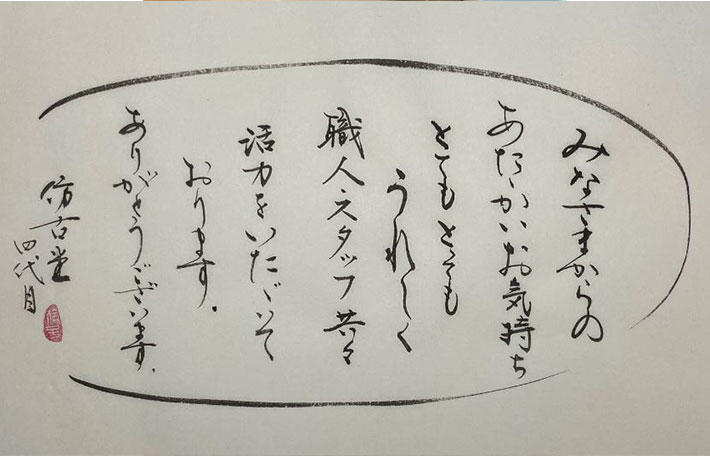 みなさまからの
あたゝかいお気持ち
とてもとっても
うれしく
職人スタッフ共々
活力をいただいて
おります。
ありがとうございます。
仿古堂
四代目